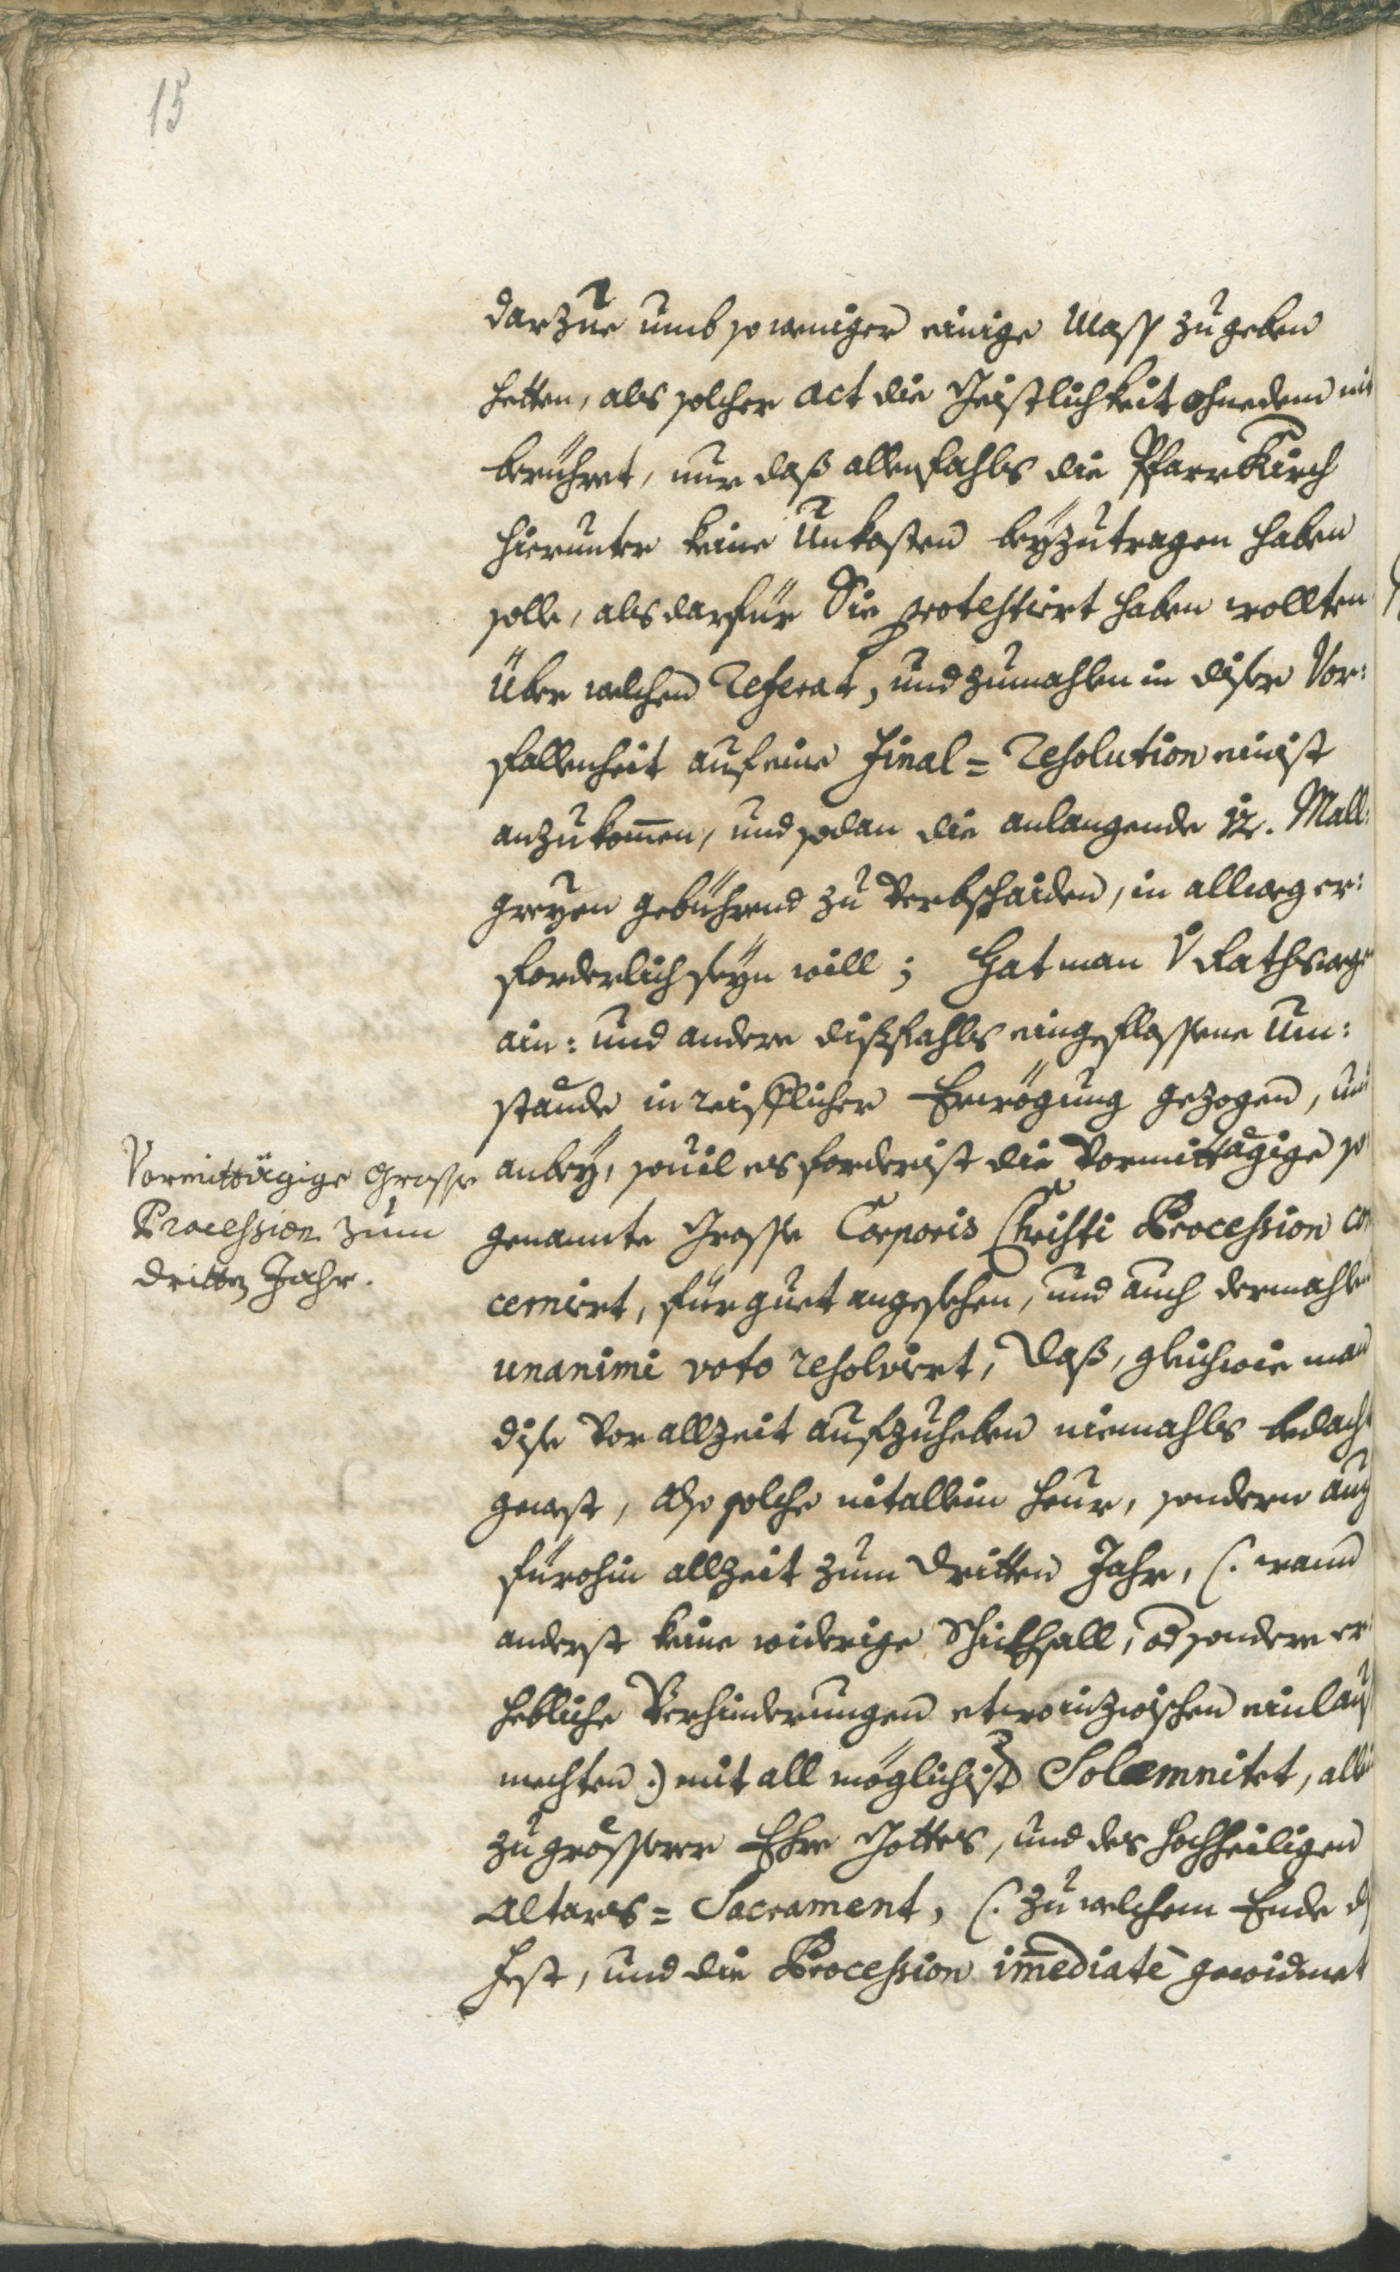 15
darzue umb so weniger einige Mass zu geben
hetten, als solcher Act die Geistlichkeit ohnedem nit
berühret, nur daß allenfahls die Pfarr Kirch
hierunter keine Unkosten beyzutragen haben
solle, als darfür Sie protestiert haben wollten
Über welchen Referat, und zumahlen in diser Vor:
fallenheit auf eine Final = Resolution einist
anzukom̅en, und sodan die anlangende
gebührend zu verbschaiden, in allweg er:
forderlich seyn will; Hat man
ain: und andere dißfahls eingeflossene Um:
stande in reifflicher Erwögung gezogen, und
anbey, souil es forderist die Vormittagige so
genannte Grosse Corporis Christi Procession con
cerniert, für guet angesehen, und auch dermahlen
unanimi voto resolviert, Daß, gleichwie man
dise vor allzeit aufzuheben niemahls bedacht
gewest, Also solche nit allein heur, sondern auch
fürohin allzeit zum dritten Jahr, (: wann
anderst keine widerige Schickhsall, od sondere er:
hebliche Verhinderungen etwo inzwischen einlauf
mechten :) mit all möglichist Solemnitet, allein
zu grösserer Ehre Gottes, und des hochheiligen
Altars = Sacrament, (: zu welchem Ende
Fest, und die Procession im̅ediatè gewidmet
Vormittägige Grosse
Procession zum
dritten Jahr.